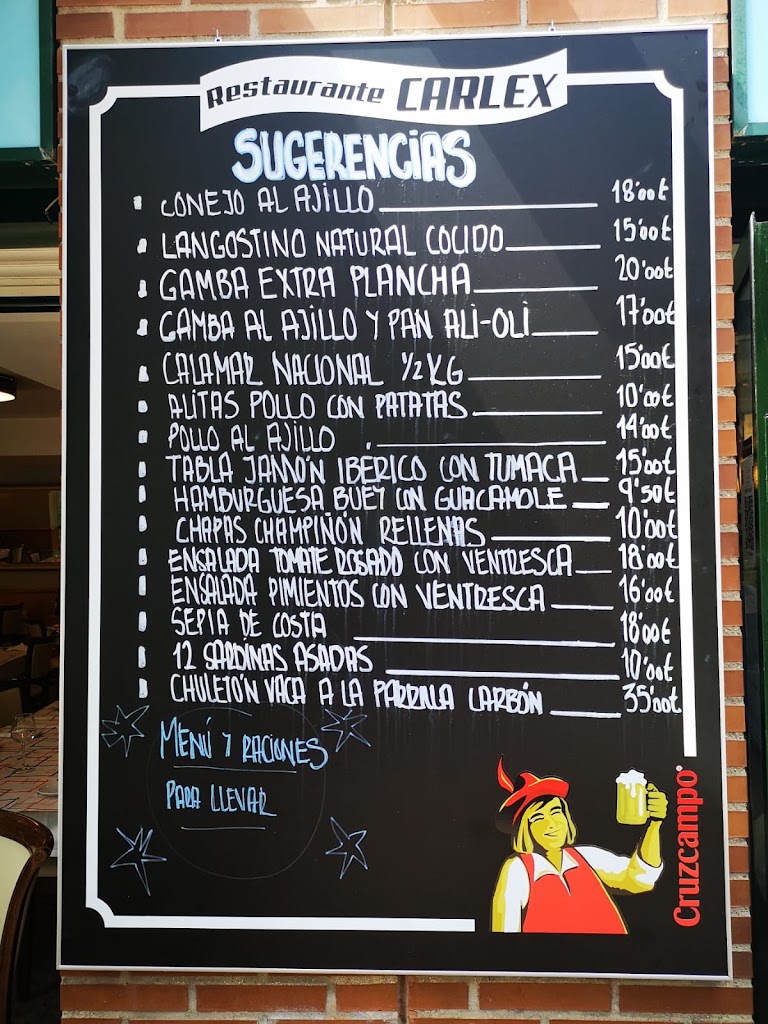 Restaurante CARLEX
SUGERENCIAS
CONEJO AL AJILLO 18'00€
LANGOSTINO NATURAL COCIDO 15'00€
GAMBA EXTRA PLANCHA 20'00€
GAMBA AL AJILLO Y PAN ALI-OLI 17'00€
CALAMAR NACIONAL 1/2 KG 15'00€
ALITAS POLLO CON PATATAS 10'00€
POLLO AL AJILLO 14'00€
TABLA JAMÓN IBERICO CON TUMACA 15'00€
HAMBURGUESA BUEY CON GUACAMOLE 9'50€
CHAPAS CHAMPIÑÓN RELLENAS 10'00€
ENSALADA TOMATE ROSADO CON VENTRESCA 18'00€
ENSALADA PIMIENTOS CON VENTRESCA 16'00€
SEPIA DE COSTA 18'00€
12 SARDINAS ASADAS 10'00€
CHULETÓN VACA A LA PARRILLA CARBÓN 35'00€
MENÚ Y RACIONES
PARA LLEVAR
Cruzcampo®